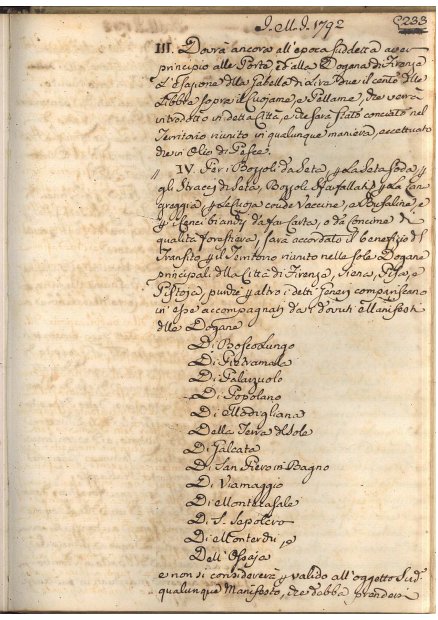 I. M. I. 1792
C233
III. Dovrà ancora all'epoca suddetta aver
principio alle Porte, ed alla Dogana di Firenze
l'Esazione della Gabella di Lire due il cento delle
Libbre sopra il Cuojame, e Pellame, che verrà
introdotto in detta Città, e che sarà stato conciato nel
Territorio riunito in qualunque maniera, eccettuato
che in Olio di Pesce.
IV. Per i Bozzoli da Seta, p la Seta soda, p
gli Stracci di Seta, Bozzoli sfarfallati, p la
greggia, p le Cuoja crude Vaccine, e Bufaline, e
p i Cenci bianchi da far Carta, o da Concime di
qualità forestiera, sarà accordato il benefizio del
Transito p il Territorio riunito nelle sole Dogane
principali della Città di Firenze, Siena, Pisa, e
Pistoja, purchè p altro i detti Generi compariscano
in esse accompagnati da i dovuti Manifesti
delle Dogane
Di Boscolungo
Di Pietramala
Di Palazzuolo
Di Popolano
Di Modigliana
Della Terra del Sole
Di Galeata
Di San Piero in Bagno
Di Viamaggio
Di Montecasale
Di S. Sepolcro
Di Monterchi, e
Dell'Ossaja
e non si considererà p valido all'oggetto Sud.
qualunque Manifesto, che debba prendersi